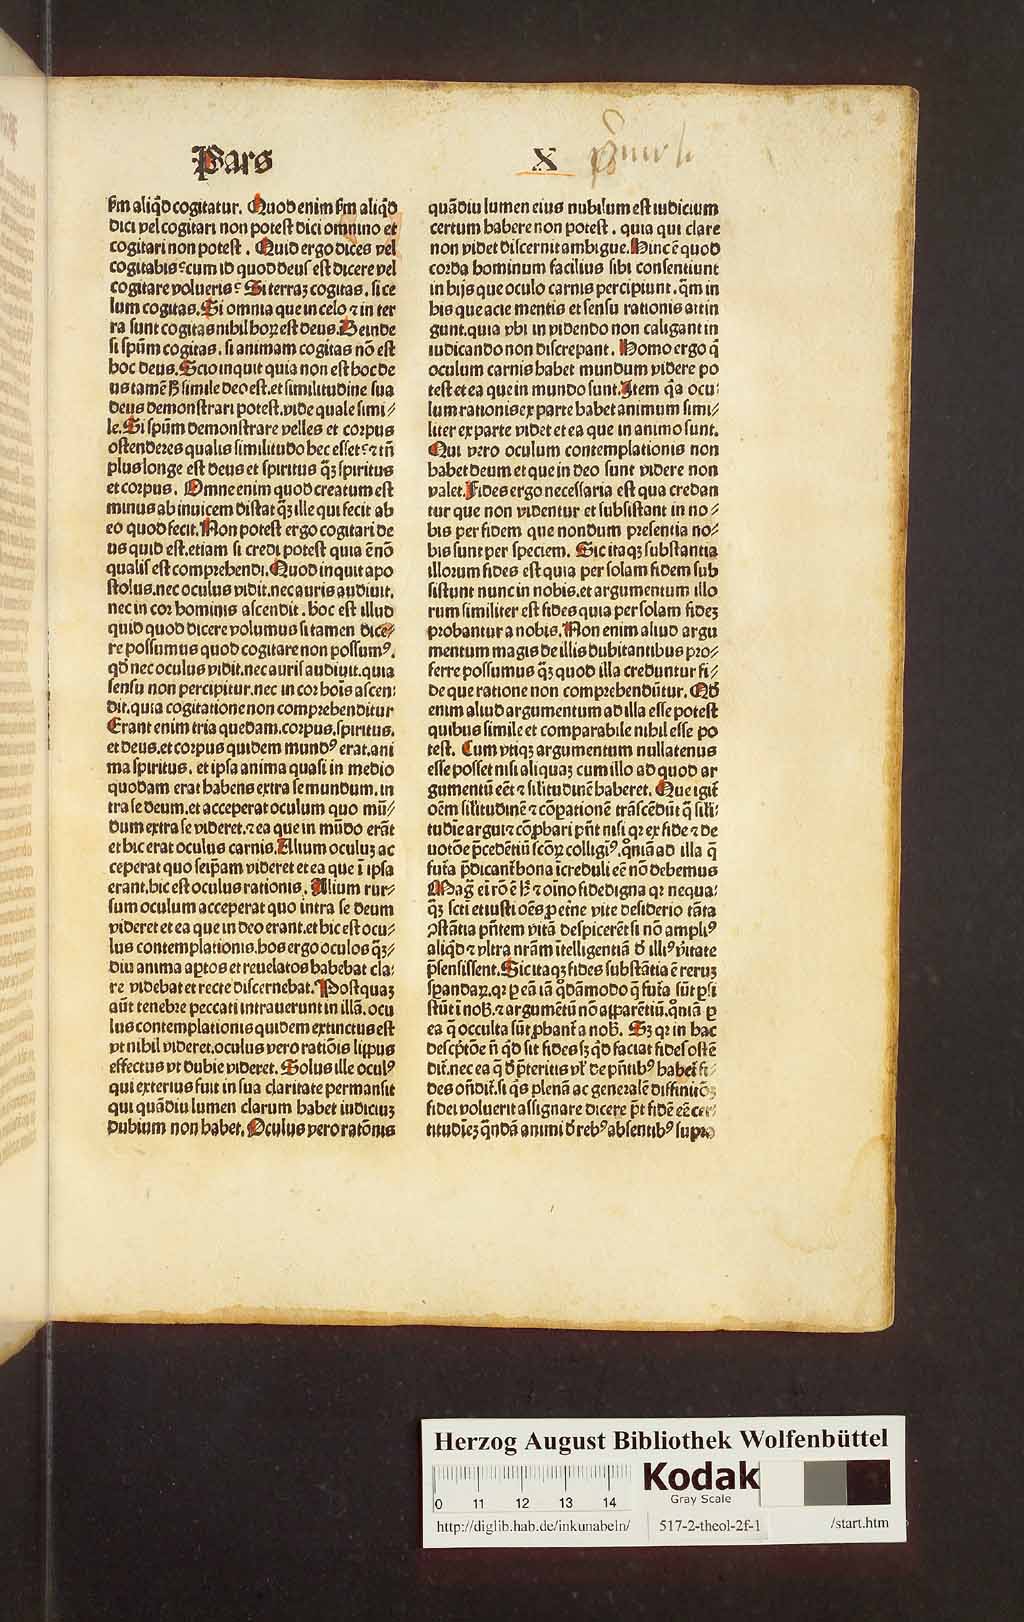 Pars
X
km aliqd cogitatur. Quod enim km aliqd
dici vel cogitari non potest dici omnino et
cogitari non potest. Quid ergo dices vel
cogitabis cum id quod deus est dicere vel
cogitare volueris Si terraz cogitas. si ce
lum cogitas. Si omnia que in celo ⁊ in ter
ra sunt cogitas nihil hoꝝ est deus. Deinde
si spūm cogitas. si animam cogitas nō est
hoc deus. Scio inquit quia non est hoc de
us tamē simile deo est. et similitudine sua
deus demonstrari potest. vide quale simi⸗
le. Si spūm demonstrare velles et corpus
ostenderes qualis similitudo hec esset ⁊ tn̄
plus longe est deus et spiritus qꝫ spiritus
et corpus. Omne enim quod creatum est
minus ab inuicem distat qꝫ ille qui fecit ab
eo quod fecit. Non potest ergo cogitari de
us quid est. etiam si credi potest quia ē nō
qualis est comprehendi. Quod inquit apo
stolus. nec oculus vidit. nec auris audiuit.
nec in cor hominis ascendit. hoc est illud
quid quod dicere volumus si tamen dice⸗
re possumus quod cogitare non possumꝰ.
qd nec oculus vidit. nec auris audiuit. quia
sensu non percipitur. nec in cor hoīs ascen⸗
dit. quia cogitatione non comprehenditur
Erant enim tria quedam. corpus. spiritus.
et deus. et corpus quidem mundꝰ erat. ani
ma spiritus. et ipsa anima quasi in medio
quodam erat habens extra se mundum. in
tra se deum. et acceperat oculum quo mū⸗
dum extra se videret. ⁊ ea que in mūdo erāt
et hic erat oculus carnis. Alium oculuz ac
ceperat quo seip̄am videret et ea que ī ipsa
erant. hic est oculus rationis. Alium rur⸗
sum oculum acceperat quo intra se deum
videret et ea que in deo erant. et hic est ocu⸗
lus contemplationis. hos ergo oculos qꝫ⸗
diu anima aptos et reuelatos habebat cla⸗
re videbat et recte discernebat. Postquaz
aūt tenebre peccati intrauerunt in illā. ocu
lus contemplationis quidem extinctus est
vt nihil videret. oculus vero ratiōis lippus
effectus vt dubie videret. Solus ille oculꝰ
qui exterius fuit in sua claritate permansit
qui quādiu lumen clarum habet iudiciuz
dubium non habet. Oculus vero ratōnis
quādiu lumen eius nubilum est iudicium
certum habere non potest. quia qui clare
non videt discernit ambigue. Hinc ē quod
corda hominum facilius sibi consentiunt
in hijs que oculo carnis percipiunt. qm in
his que acie mentis et sensu rationis attin
gunt. quia vbi in videndo non caligant in
iudicando non discrepant. Homo ergo q̄
oculum carnis habet mundum videre po
test et ea que in mundo sunt. Item q̄a ocu⸗
lum rationis ex parte habet animum simi⸗
liter ex parte videt et ea que in animo sunt.
Qui vero oculum contemplationis non
habet deum et que in deo sunt videre non
valet. Fides ergo necessaria est qua credan
tur que non videntur et subsistant in no⸗
bis per fidem que nondum presentia no⸗
bis sunt per speciem. Sic itaqꝫ substantia
illorum fides est quia per solam fidem sub
sistunt nunc in nobis. et argumentum illo
rum similiter est fides quia per solam fidez
probantur a nobis. Non enim aliud argu
mentum magis de illis dubitantibus pro⸗
ferre possumus qꝫ quod illa creduntur fi⸗
de que ratione non comprehendūtur. Qd
enim aliud argumentum ad illa esse potest
quibus simile et comparabile nihil esse po
test. Cum vtiqꝫ argumentum nullatenus
esse posset nisi aliquaz cum illo ad quod ar
gumentū eēt ⁊ silitudinē haberet. Que igit̄
oēm silitudinē ⁊ cōpationē trāscēdūt q̄ sili⸗
tudīe argui ⁊ cōprbari pn̄t nisi qꝛ ex fide ⁊ de
uotōe p̄cedentiū scōꝝ colligiꝰ. qn̄iā ad illa q̄
fut̄a p̄dicant̄ bona īcreduli eē nō debemus
⁊ oīno fide digna qꝛ nequa⸗
qꝫ sctī et iusti oēs p eterne vite desiderio tāta
ꝯstātia pn̄tem vitā despicerēt si nō ampliꝰ
aliqd ⁊ vltra nrām ītelligentiā d̄ illiꝰ v̄itate
p̄sensissent. Sic itaqꝫ fides substātia ē reruz
sperandaꝝ. qꝛ p eā iā qdāmodo q̄ fut̄a sūt psi
stūt ī nob̄. ⁊ argumētū nō apparētiū. qn̄iā p
ea q̄ occulta sūt probant̄ a nob̄. Sꝫ qꝛ in hac
descp̄tōe n̄ qd sit fides sꝫ qd faciat fides ostē
dit̄. nec ea q̄ d̄ p̄teritis vl̓ de pn̄tibꝰ habet fi⸗
des ōn̄dit̄. si qs plenā ac generalē diffinitōꝫ
fidei voluerit assignare dicere pt̄ fidē eē cer⸗
titudīez qn̄dā animi d̄ rebꝰ absentibꝰ supra
Herzog August Bibliothek Wolfenbüttel
Kodak
Gray Scale
0 11 12 13 14
http://diglib.hab.de/inkunabeln/ 517-2-theol-2f-1 /start.htm